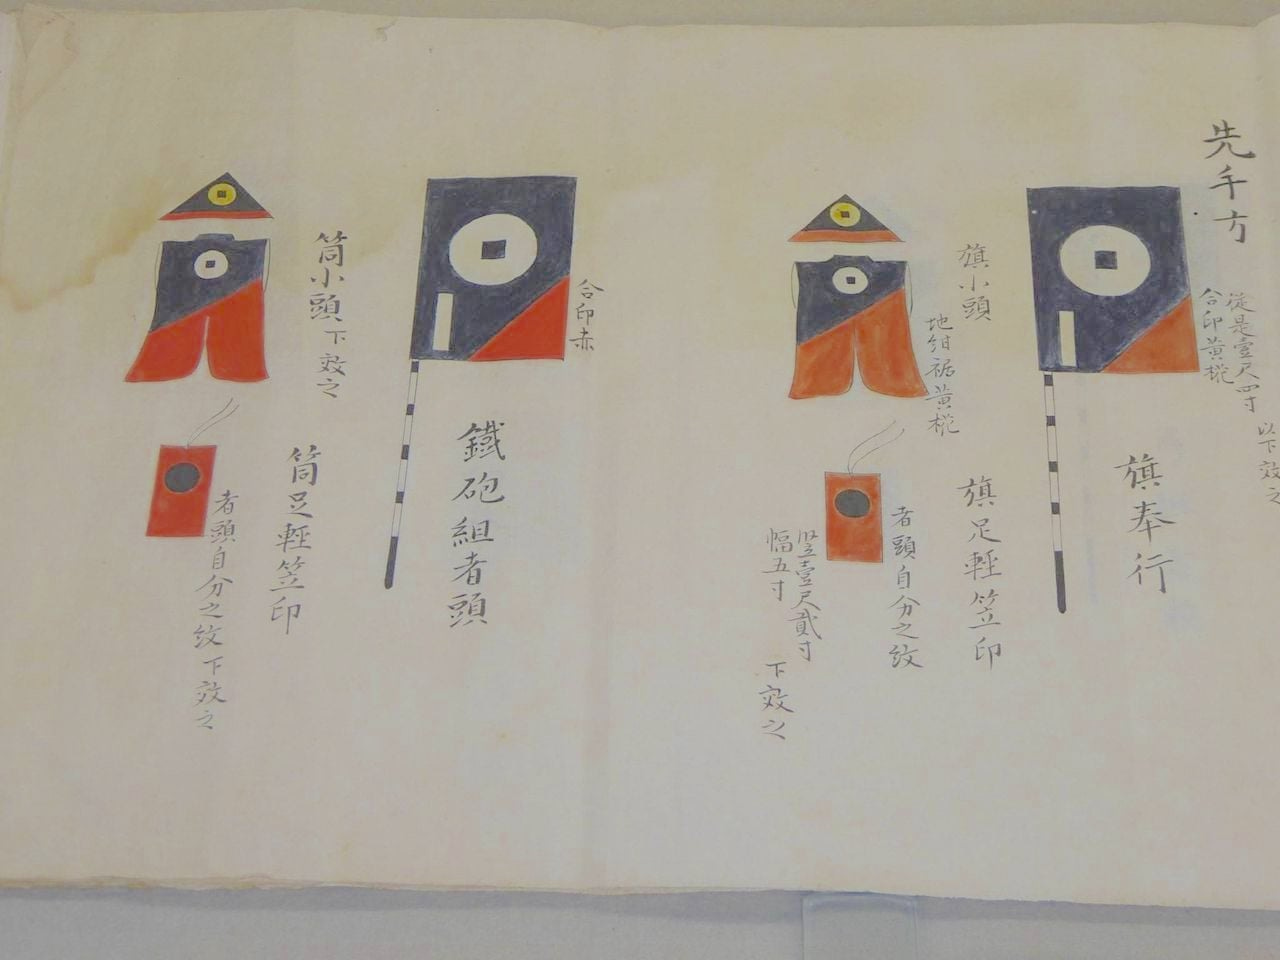 先手方
從是壹尺四寸
合印黄梔
以下效之
旗奉行
旗小頭
地紺裾黄梔
旗足輕笠印
者頭自分之紋
竪壹尺貳寸
幅五寸
下效之
合印赤
鐵砲組者頭
筒小頭下效之
筒足輕笠印
者頭自分之紋下效之